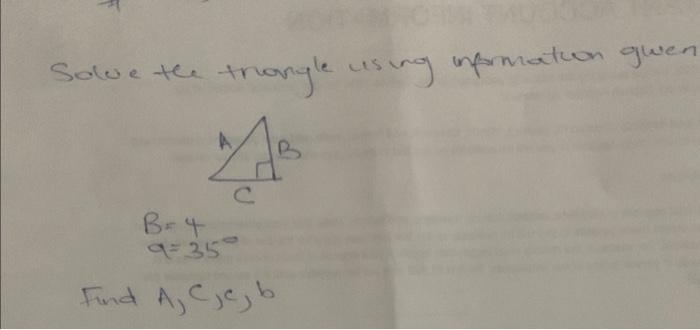 Solve the triangle using information given
A
B
C
B=4
a=35°
Find A, C, c, b